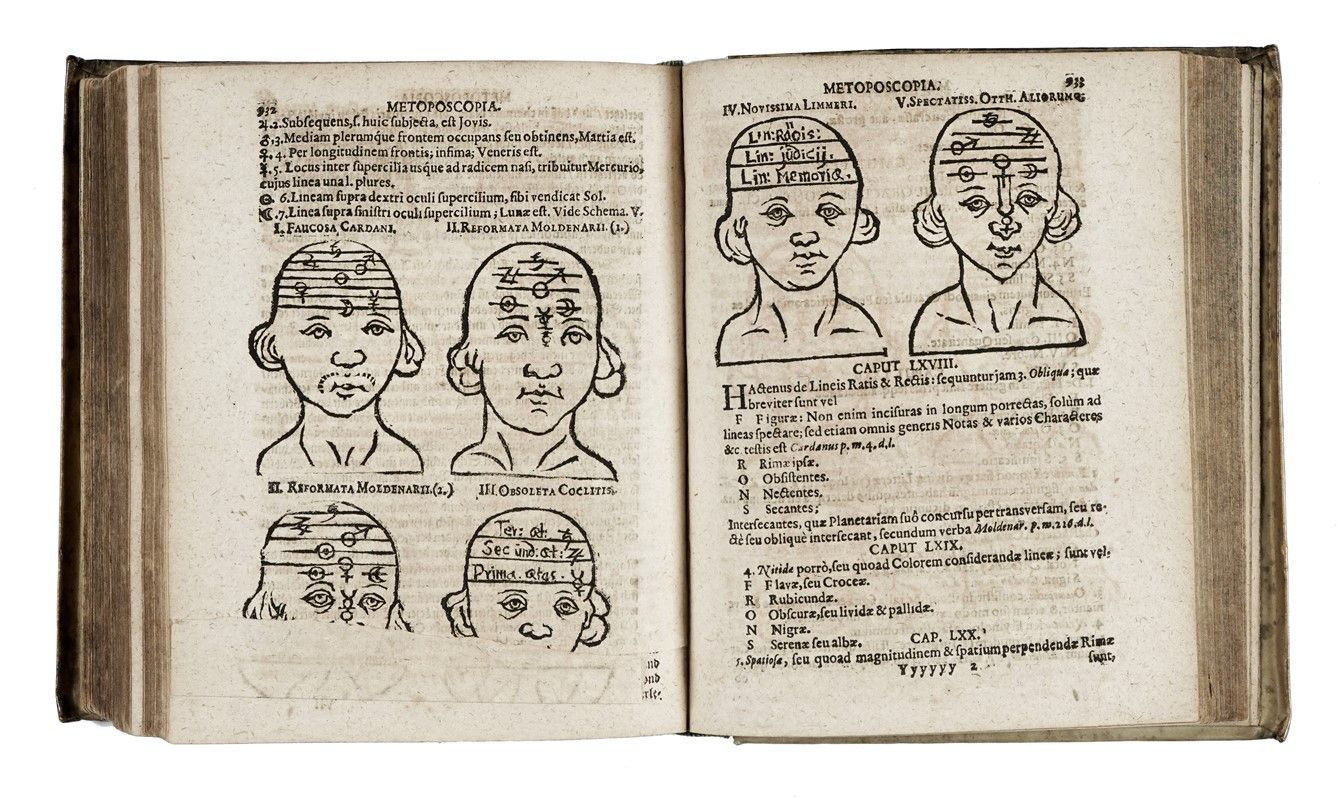 932 METOPOSCOPIA.
♃. 2. Subsequens, s. huic subjecta, est Jovis.
♂. 3. Mediam plerumque frontem occupans seu obtinens, Martia est.
♀. 4. Per longitudinem frontis; infima; Veneris est.
☿. 5. Locus inter supercilia usque ad radicem nasi, tribuitur Mercurio,
cujus linea una l. plures.
☉. 6. Lineam supra dextri oculi supercilium, sibi vendicat Sol.
☾. 7. Linea supra sinistri oculi supercilium; Lunæ est. Vide Schema. V.
I. FAUCOSA CARDANI. II. REFORMATA MOLDENARII. (1.)
II. REFORMATA MOLDENARII. (2.) III. OBSOLETA COCLITIS.
Ter: æt: ♄
Secund: æt: ♃
Prima. ætas. ☿
METOPOSCOPIA. 933
IV. NOVISSIMA LIMMERI. V. SPECTATISS. OTTH. ALIORUMQ;
Lin: judicij.
Lin: Memoriæ.
CAPUT LXVIII.
HActenus de Lineis Ratis & Rectis: sequuntur jam 3. Obliquæ; quæ
breviter sunt vel
F Figuræ: Non enim incisuras in longum porrectas, solùm ad
lineas spectare; sed etiam omnis generis Notas & varios Characteres
&c. testis est Cardanus p. m. 4. d. l.
R Rimæ ipsæ.
O Obsistentes.
N Nectentes.
S Secantes;
Intersecantes, quæ Planetariam suô concursu per transversam, seu re-
ctè seu obliquè intersecant, secundum verba Moldenar. p. m. 216. d. l.
CAPUT LXIX.
4. Nitidæ porrò, seu quoad Colorem considerandæ lineæ; sunt vel:
F Flavæ, seu Croceæ.
R Rubicundæ.
O Obscuræ, seu lividæ & pallidæ.
N Nigræ.
S Serenæ seu albæ.
CAP. LXX.
5. Spatiosæ, seu quoad magnitudinem & spatium perpendendæ Rimæ
Yyyyyy 2 sunt,